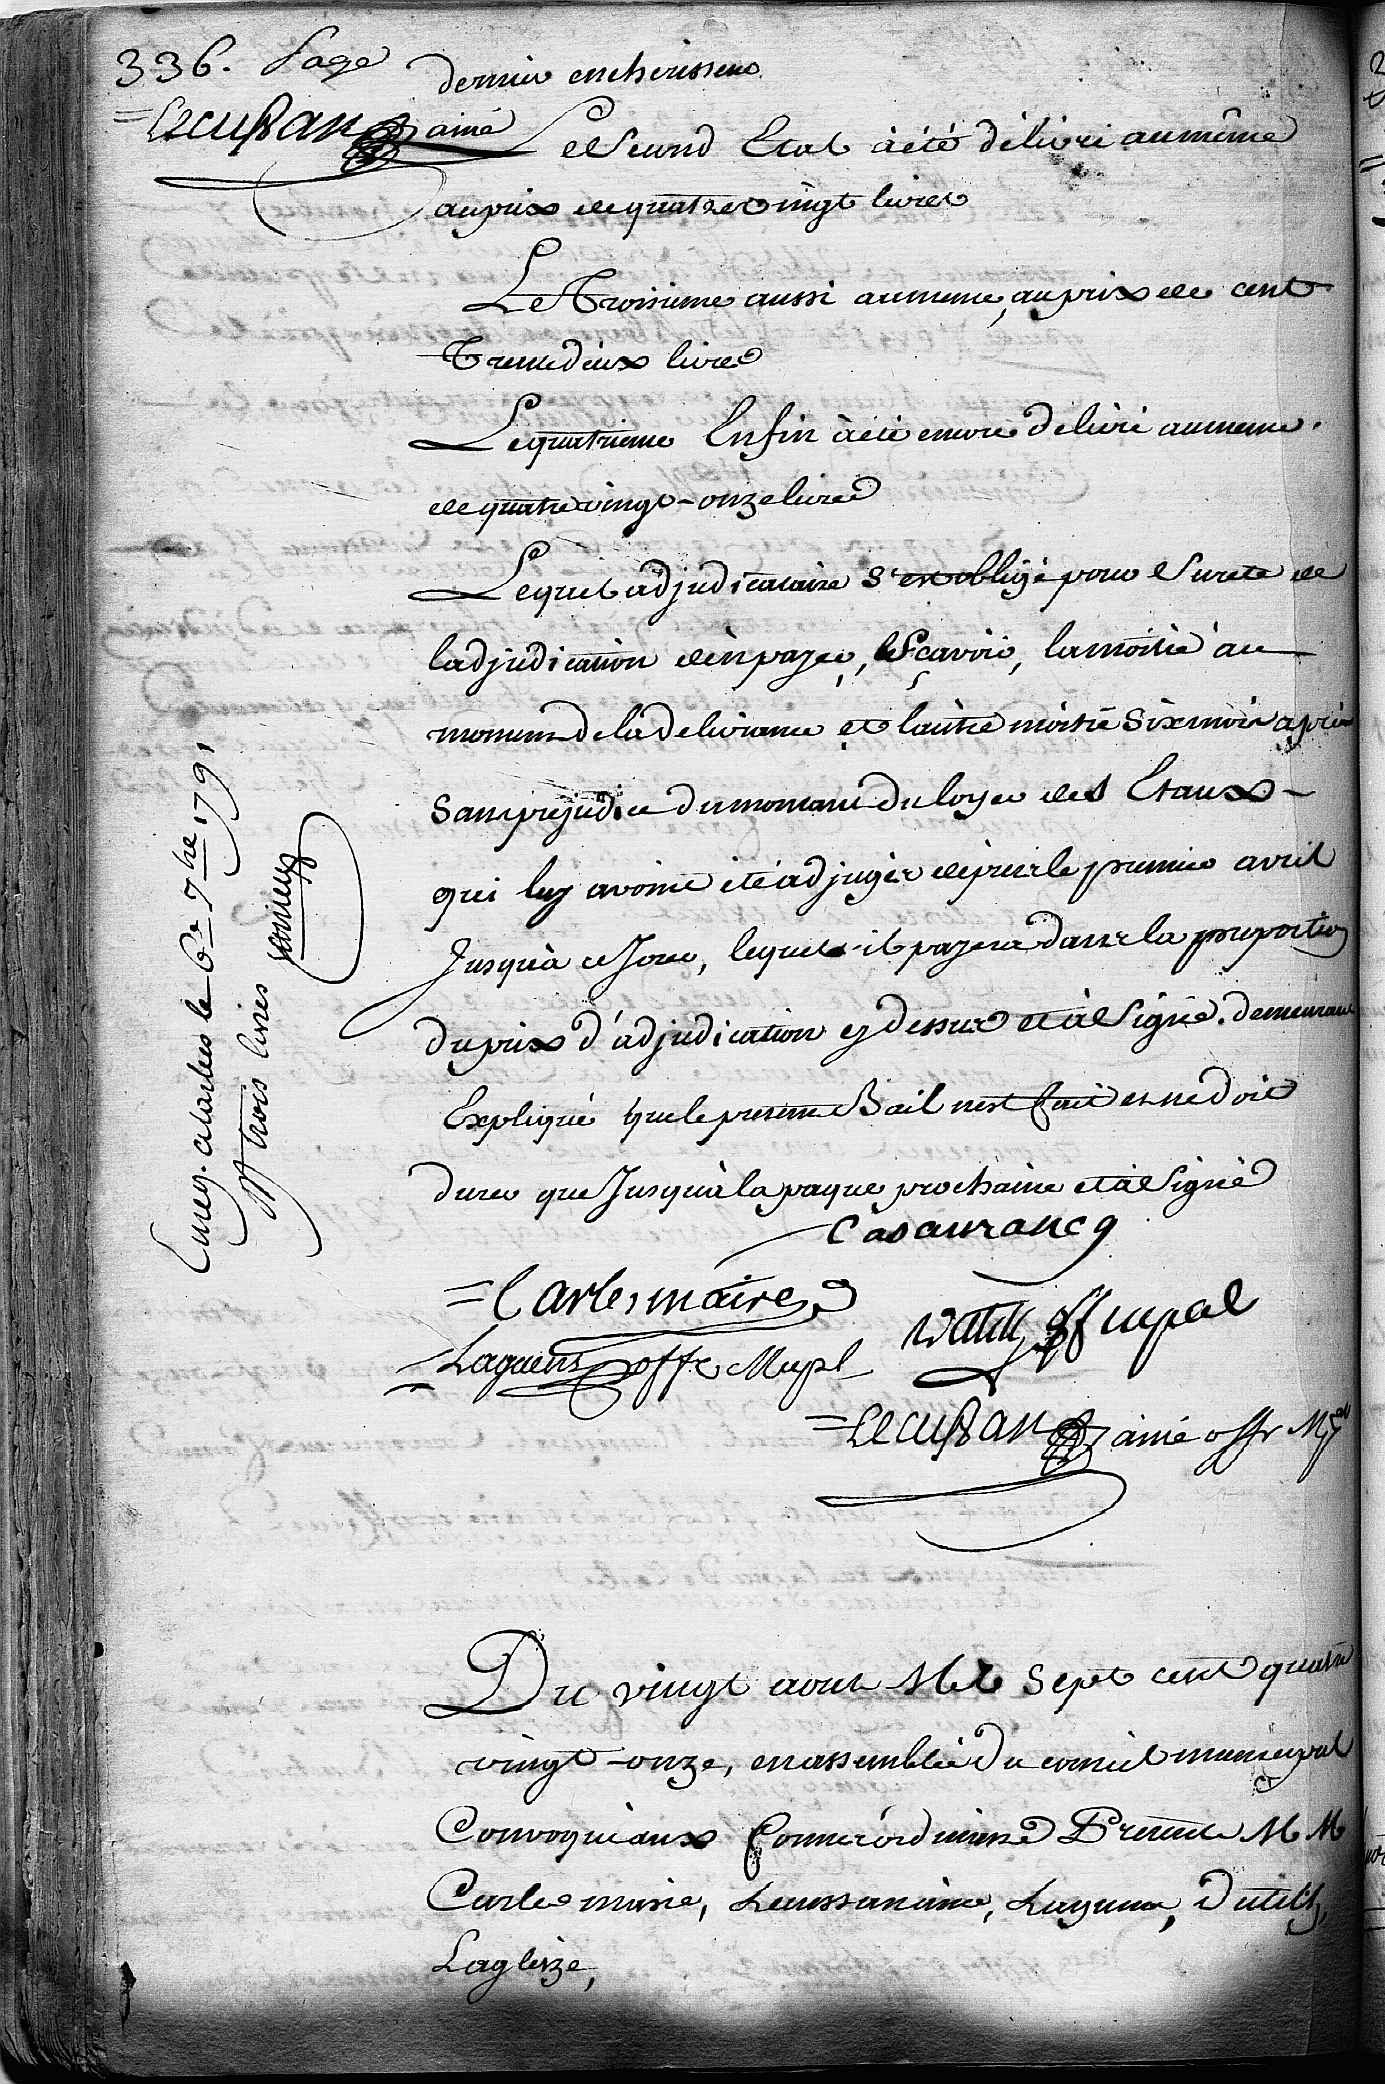 336. Page
dernier encherisseur
= Lecussan ainé
Le Second Etal à été délivré au même
au prix de quatre vingt livres
Le Troisieme aussi au meme, au prix de cent
Trente deux livres
Le quatrieme Enfin à été encore délivré au meme
de quatre vingt-onze livres
Lequel adjudicataire s'est obligé pour Sureté de
ladjudication d'en payer, Scavoir, la moitié au
moment de la delivrance et lautre moitié Six mois après
Sans prejudice du montant du loyer des Etaux -
qui luy avoint été adjugés depuis le premier avril
Jusqu'à ce Jour, lequel il payera dans la proportion
du prix d'adjudication cy dessus et à Signé. demeurant
Expliqué que le present Bail n'est fait et ne doit
durer que Jusqu'à la paque prochaine et à Signé
Casaurancq
= Carles maire
Laguens offr Mupl
offr mupal
= Lecussan ainé offr Mpal
Enreg. a tarbes le 6e 7bre 1791
trois livres
Du vingt aout Mil Sept cent quatre
vingt-onze, en assemblée du conseil municipal
Convoqué aux formes ordinaires Presents MM
Carles maire, Lecussan ainé, Laguens, Dutilh,
Lagleize,